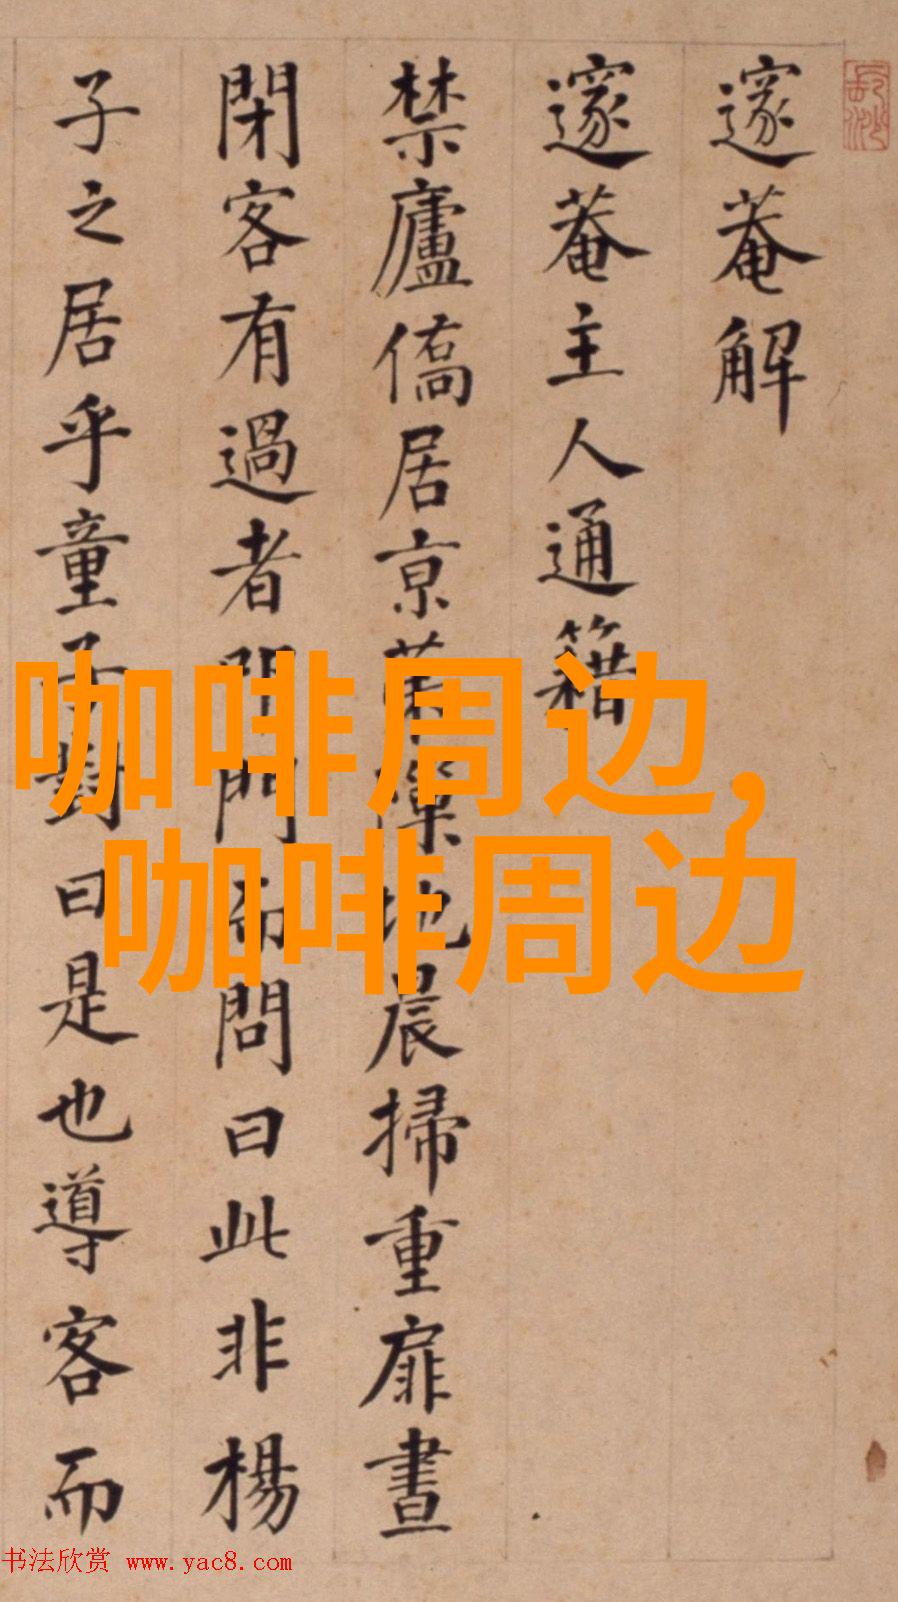 邃菴解
邃菴主人通籍
禁廬僑居京第隙地晨掃重扉晝
閉客有過者即門而問曰此非楊
子之居乎童子對曰是也導客而
咖啡周边,
咖啡周边
书法欣赏 www.yac8.com